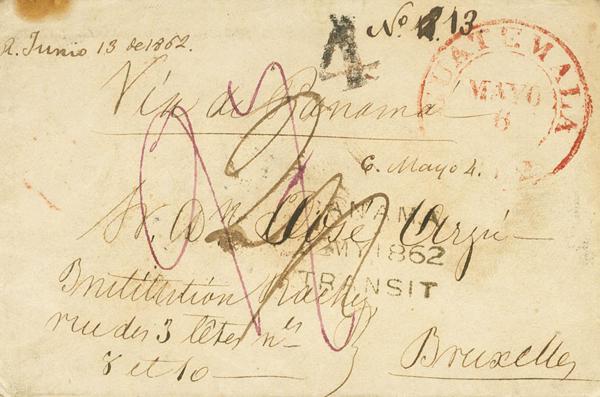 R. Junio 13 de 1862.
4
Nº 13
GUATEMALA
MAYO
6
Via de Panama
6. Mayo 4.
Sr. Dn José Arzú
PANAMA
MY 1862
TRANSIT
Institution
rue des 3 têtes nos
8 et 10
Bruxelles